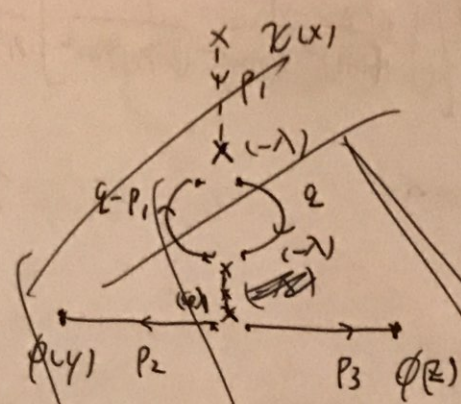 x K(x)
p₁
x (-λ)
q-p₁ q
(-λ)
x
φ(y) p₂ p₃ φ(z)